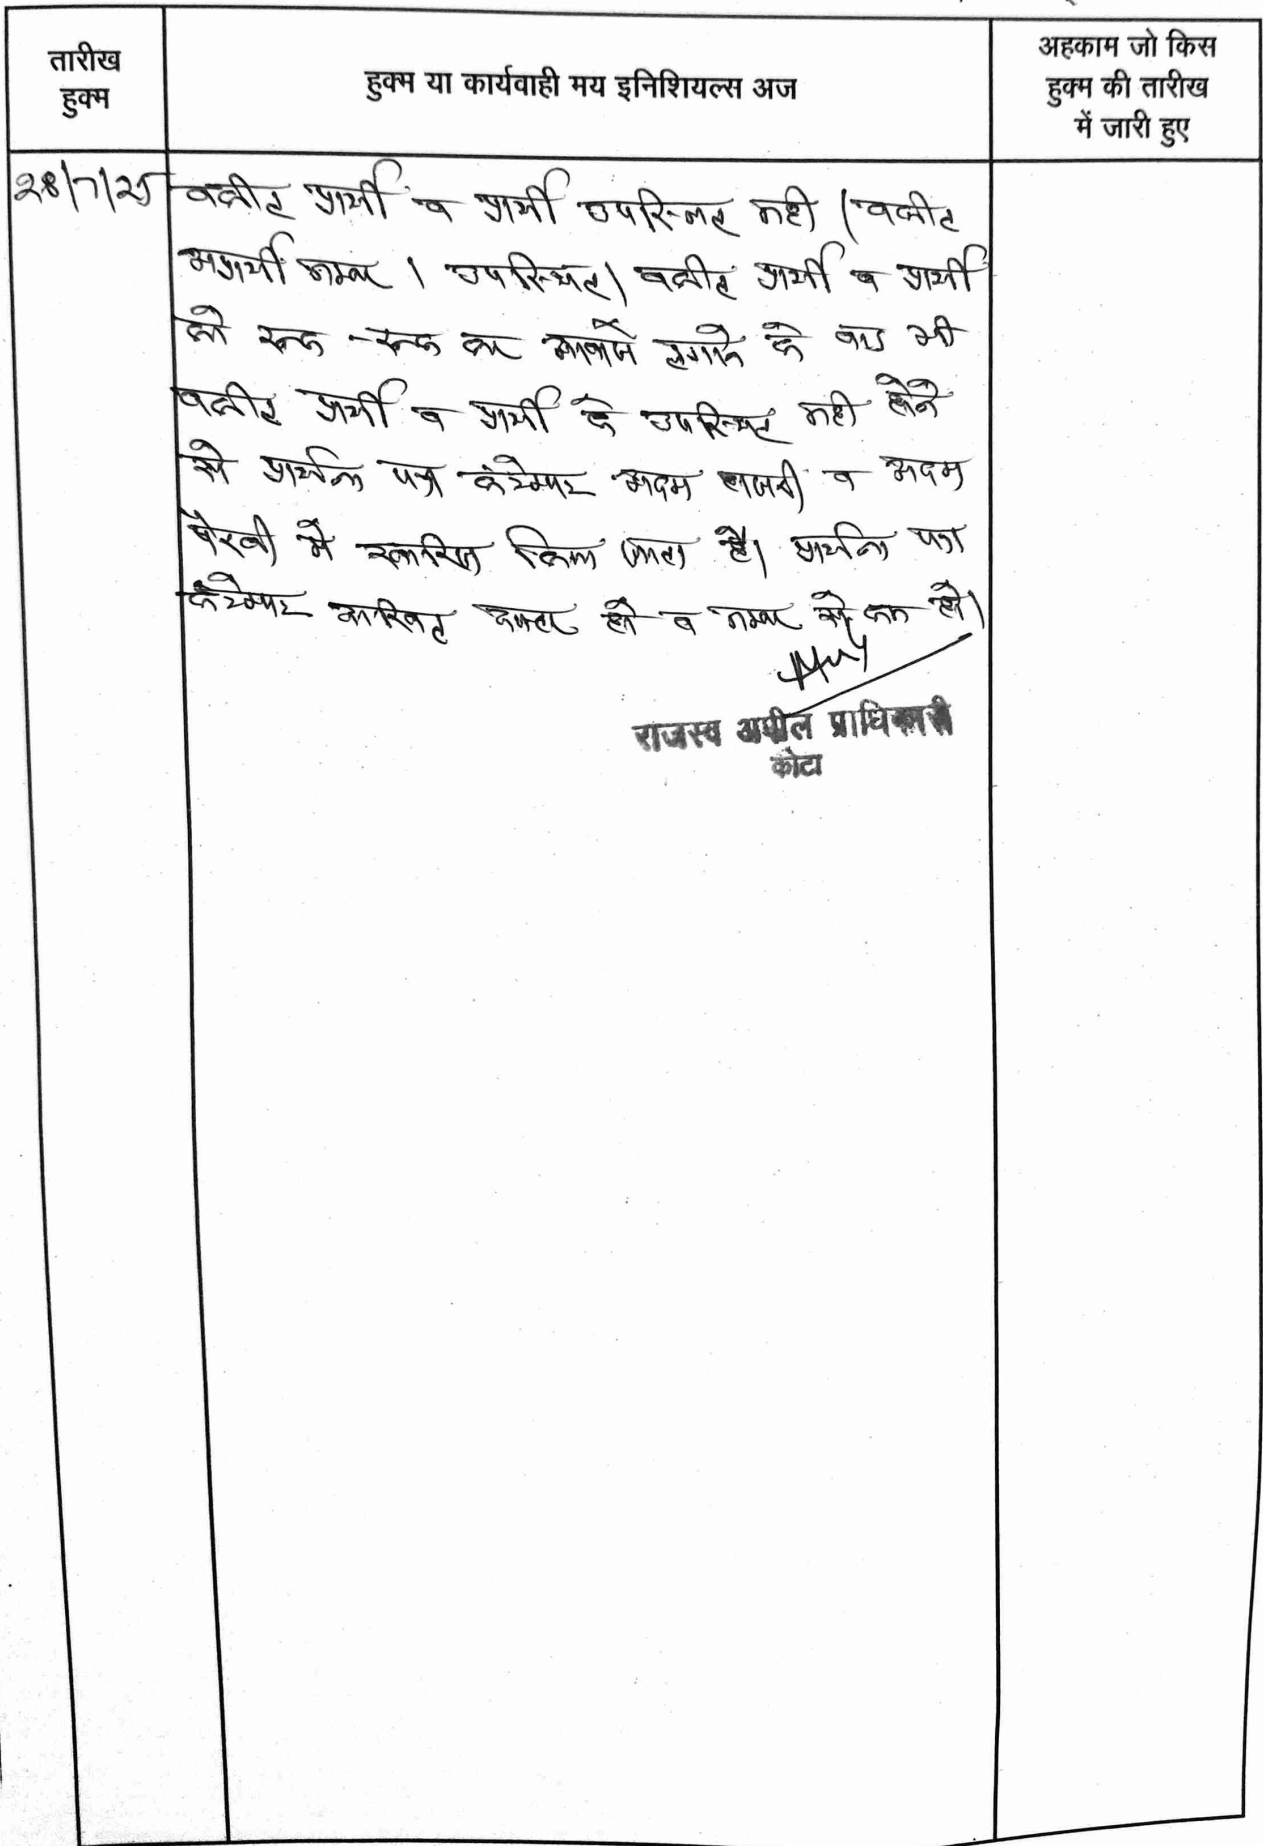 तारीख
हुक्म
हुक्म या कार्यवाही मय इनिशियल्स अज
अहकाम जो किस
हुक्म की तारीख
में जारी हुए
28/7/25
वकील प्रार्थी व प्रार्थी उपस्थित नही । वकील
अप्रार्थी नम्बर 1 उपस्थित। वकील प्रार्थी व प्रार्थी
को रूक-रूक कर आवाजें लगाने के बाद भी
वकील प्रार्थी व प्रार्थी के उपस्थित नही होने
से प्रार्थना पत्र कंटेम्पट अदम हाजरी व अदम
पैरवी में खारिज किया जाता है। प्रार्थना पत्र
कंटेम्पट दाखिल दफ्तर हो व नम्बर से कम हो।
राजस्व अपील प्राधिकारी
कोटा